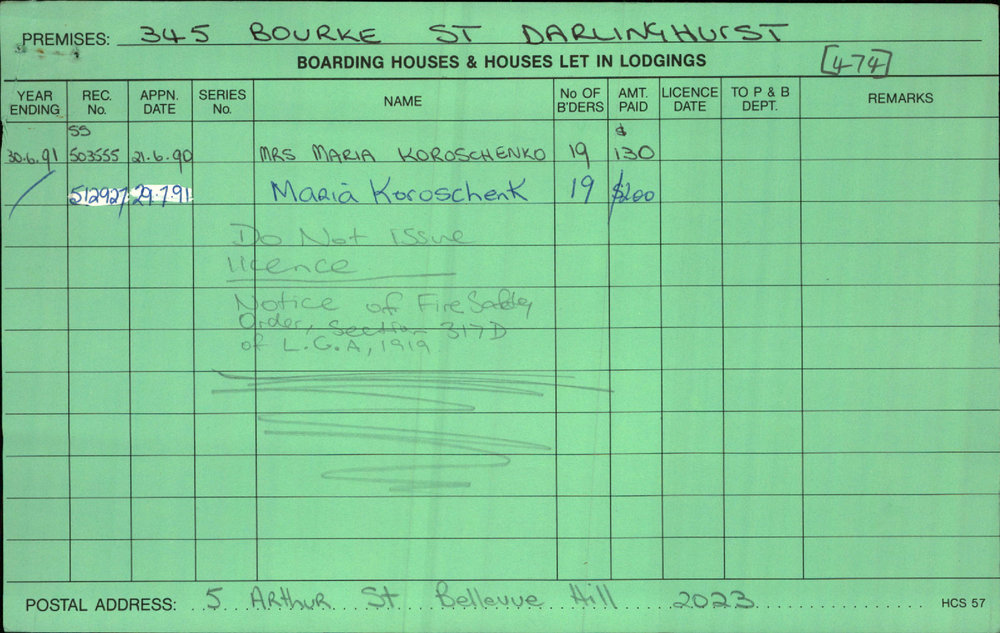 PREMISES: 345 BOURKE ST DARLINGHURST
BOARDING HOUSES & HOUSES LET IN LODGINGS [474]
YEAR ENDING REC. No. APPN. DATE SERIES No. NAME No OF B'DERS AMT. PAID LICENCE DATE TO P & B DEPT. REMARKS
SS $
30.6.91 503555 21.6.90 MRS MARIA KOROSCHENKO 19 130
512927 29.7.91 Maria Koroschenk 19 $200
Do Not Issue
licence
Notice of Fire Safety
Order, Section 317D
of L.G.A, 1919
POSTAL ADDRESS: 5 Arthur St Bellevue Hill 2023 HCS 57